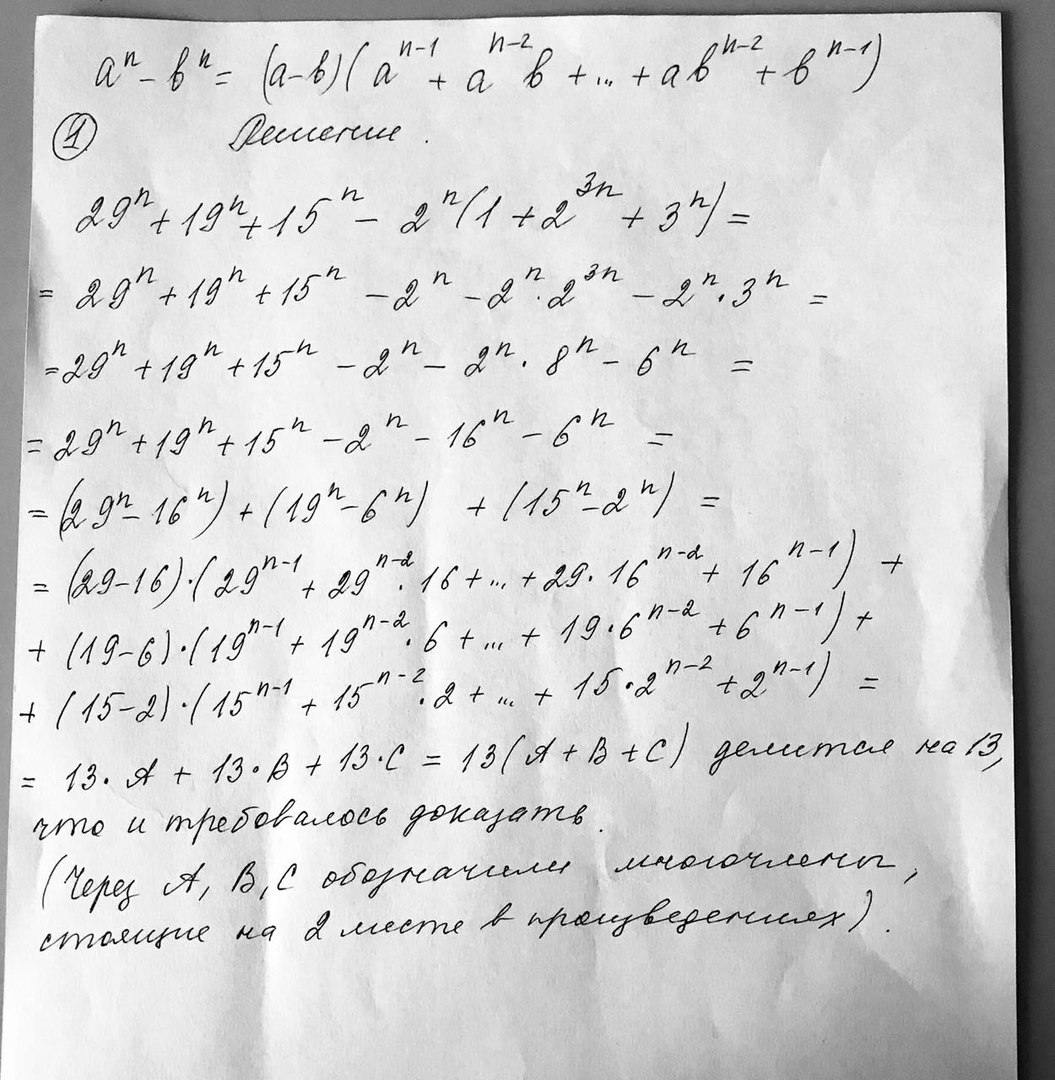 aⁿ - bⁿ = (a-b)(aⁿ⁻¹ + aⁿ⁻²b + ... + abⁿ⁻² + bⁿ⁻¹)
① Решение.
29ⁿ + 19ⁿ + 15ⁿ - 2ⁿ(1 + 2³ⁿ + 3ⁿ) =
= 29ⁿ + 19ⁿ + 15ⁿ - 2ⁿ - 2ⁿ · 2³ⁿ - 2ⁿ · 3ⁿ =
= 29ⁿ + 19ⁿ + 15ⁿ - 2ⁿ - 2ⁿ · 8ⁿ - 6ⁿ =
= 29ⁿ + 19ⁿ + 15ⁿ - 2ⁿ - 16ⁿ - 6ⁿ =
= (29ⁿ - 16ⁿ) + (19ⁿ - 6ⁿ) + (15ⁿ - 2ⁿ) =
= (29-16)·(29ⁿ⁻¹ + 29ⁿ⁻² · 16 + ... + 29 · 16ⁿ⁻² + 16ⁿ⁻¹) +
+ (19-6)·(19ⁿ⁻¹ + 19ⁿ⁻² · 6 + ... + 19 · 6ⁿ⁻² + 6ⁿ⁻¹) +
+ (15-2)·(15ⁿ⁻¹ + 15ⁿ⁻² · 2 + ... + 15 · 2ⁿ⁻² + 2ⁿ⁻¹) =
= 13 · A + 13 · B + 13 · C = 13(A + B + C) делится на 13,
что и требовалось доказать.
(Через A, B, C обозначили многочлены,
стоящие на 2 месте в произведениях).